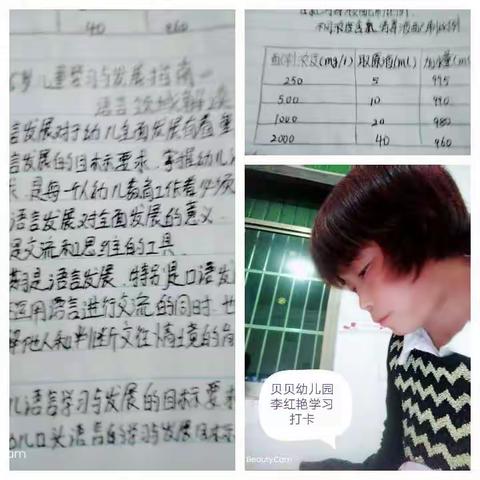 40 960
儿童学习与发展指南一
语言领域解读
言发展对于幼儿全面发展有着重
言发展的目标示要求，掌握幼儿
是每一个幼儿教育工作者必须
语言发展对全面发展的意义
是交流和思维的工具
期是语言发展，特别是口语发
运用语言进行交流的同时，也
解他人和判断交往情境的
儿语言学习与发展的目标要求
幼儿口头语言的学习与发展目标
不同浓度含氯消毒液配制比例
配制浓度(mg/l) 取原液(ml) 加水量(ml
250 5 995
500 10 990
1000 20 980
2000 40 960
贝贝幼儿园
李红艳学习
打卡
BeautyCam
om